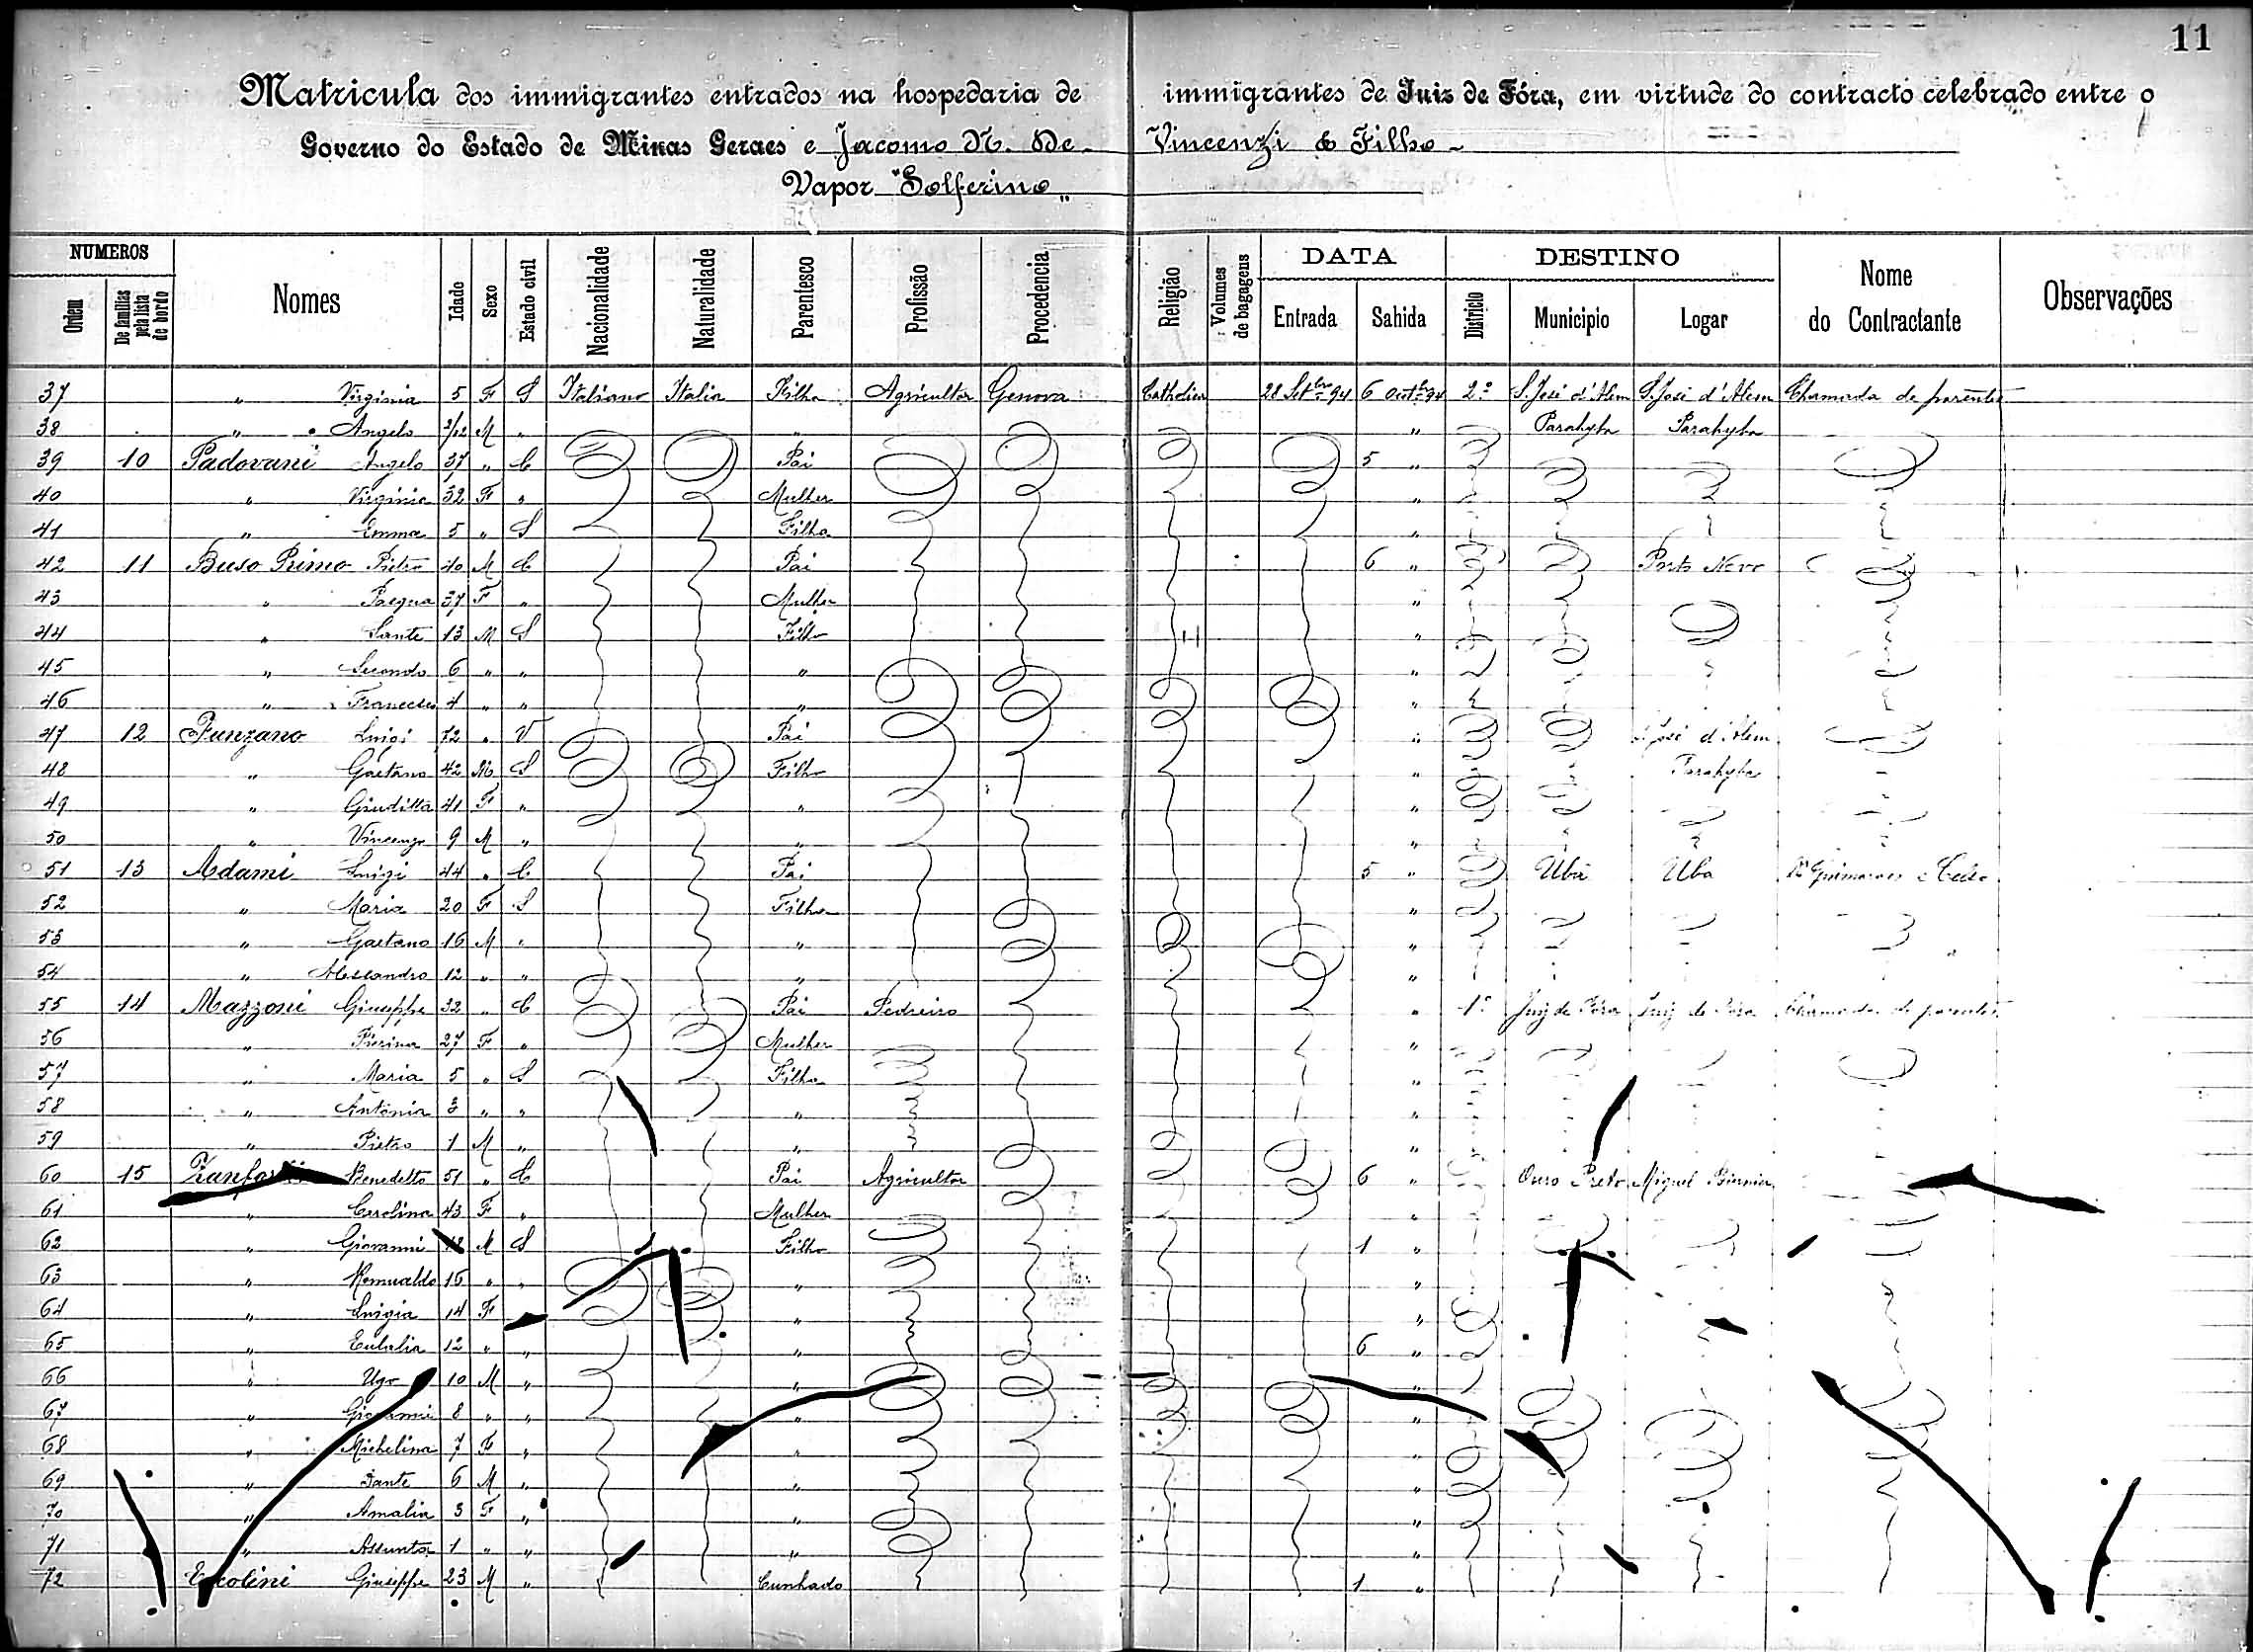 11
Matricula dos immigrantes entrados na hospedaria de immigrantes de Juiz de Fóra, em virtude do contracto celebrado entre o
Governo do Estado de Minas Geraes e Jacomo N. De Vincenzi & Filho
Vapor "Solferino"
NUMEROS
Ordem De familias pela lista de bordo Nomes Idade Sexo Estado civil Nacionalidade Naturalidade Parentesco Profissão Procedencia Religião Volumes de bagagens DATA Entrada Sahida DESTINO Districto Municipio Logar Nome do Contractante Observações
37 " Virginia 5 F S Italiano Italia Filha Agricultor Genova Catholica 28 Setbro 94 6 Outbr 94 2º S. José d'Alem S. José d'Alem Chamada de parentes
38 " Angelo 2/12 M " " " Parahyba Parahyba
39 10 Padovani Angelo 37 " C Pai 5 "
40 " Virginia 32 F " Mulher "
41 " Emma 5 " S Filha "
42 11 Buso Primo Pietro 40 M C Pai 6 " Porto Novo
43 " Pasqua 37 F " Mulher "
44 " Sante 13 M S Filho "
45 " Secondo 6 " " " "
46 " Francesco 4 " " " "
47 12 Punzano Luigi 72 " V Pai " S. José d'Alem
48 " Gaetano 42 M S Filho " Parahyba
49 " Giuditta 41 F " " "
50 " Vincenzo 9 M " " "
51 13 Adami Luigi 44 " C Pai 5 " Ubá Uba Guimaraes
52 " Maria 20 F S Filha "
53 " Gaetano 16 M " " "
54 " Alessandro 12 " " " "
55 14 Mazzoni Giuseppe 32 " C Pai Pedreiro " 1º Juiz de Fóra Juiz de Fóra Chamada de parentes
56 " Pierina 27 F " Mulher "
57 " Maria 5 " S Filha "
58 " Antonia 3 " " " "
59 " Pietro 1 M " " "
60 15 Benedetto 51 " C Pai Agricultor 6 " Ouro Preto Miguel Burnier
61 " Carolina 43 F " Mulher "
62 " Giovanni M S Filho 1 "
63 " Romualdo 15 " " " "
64 " Luigia 14 F " "
65 " Eulalia 12 " " " 6 "
66 " Ugo 10 M " " "
67 " Giovanni 8 " " " "
68 " Michelina 7 F " " "
69 " Dante 6 M " " "
70 " Amalia 3 F " " "
71 " Assunta 1 " " " "
72 Ercolini Giuseppe 23 M " Cunhado 1 "